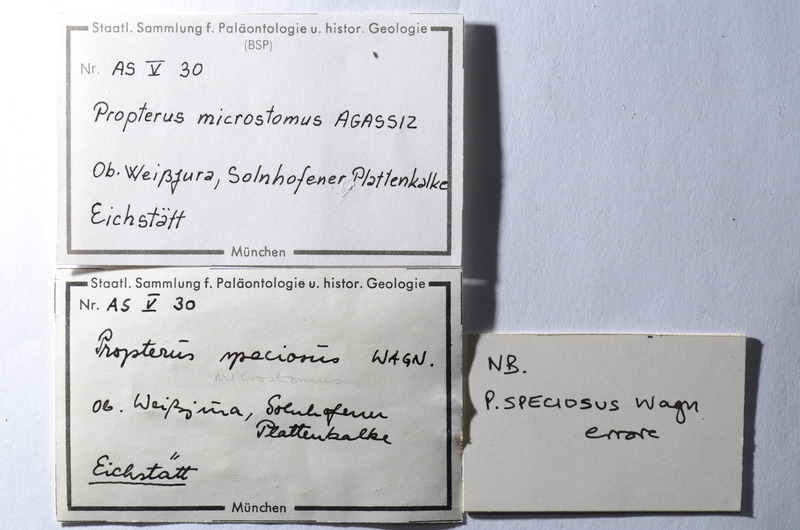 Staatl. Sammlung f. Paläontologie u. histor. Geologie
(BSP)
Nr. AS V 30
Propterus microstomus AGASSIZ
Ob. Weißjura, Solnhofener Plattenkalke
Eichstätt
München
Staatl. Sammlung f. Paläontologie u. histor. Geologie
Nr. AS V 30
Propterus speciosus WAGN.
microstomus
Ob. Weißjura, Solnhofener
Plattenkalke
Eichstätt
München
NB.
P. SPECIOSUS Wagn
errore